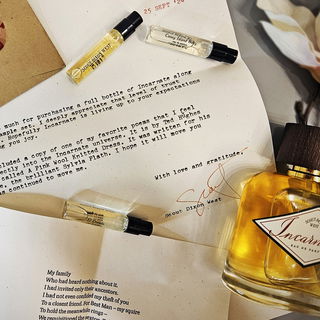 25 SEPT '24
much for purchasing a full bottle of Incarnate along
sample set. I deeply appreciate that level of trust
Hopefully Incarnate is living up to your expectations
ng you joy.
cluded a copy of one of my favorite poems that I feel
ectly into the Incarnate universe. It is by Ted Hughes
called A Pink Wool Knitted Dress. It was written for
brilliant Sylvia Plath. I hope it will move you
continued to move me.
With love and gratitude,
Scout Dixon West
Incarn
EAU DE PARFUM
My family
Who had heard nothing about it.
I had invited only their ancestors.
I had not even confided my theft of you
To a closest friend. For Best Man – my squire
To hold the meanwhile rings –
We requisitioned the